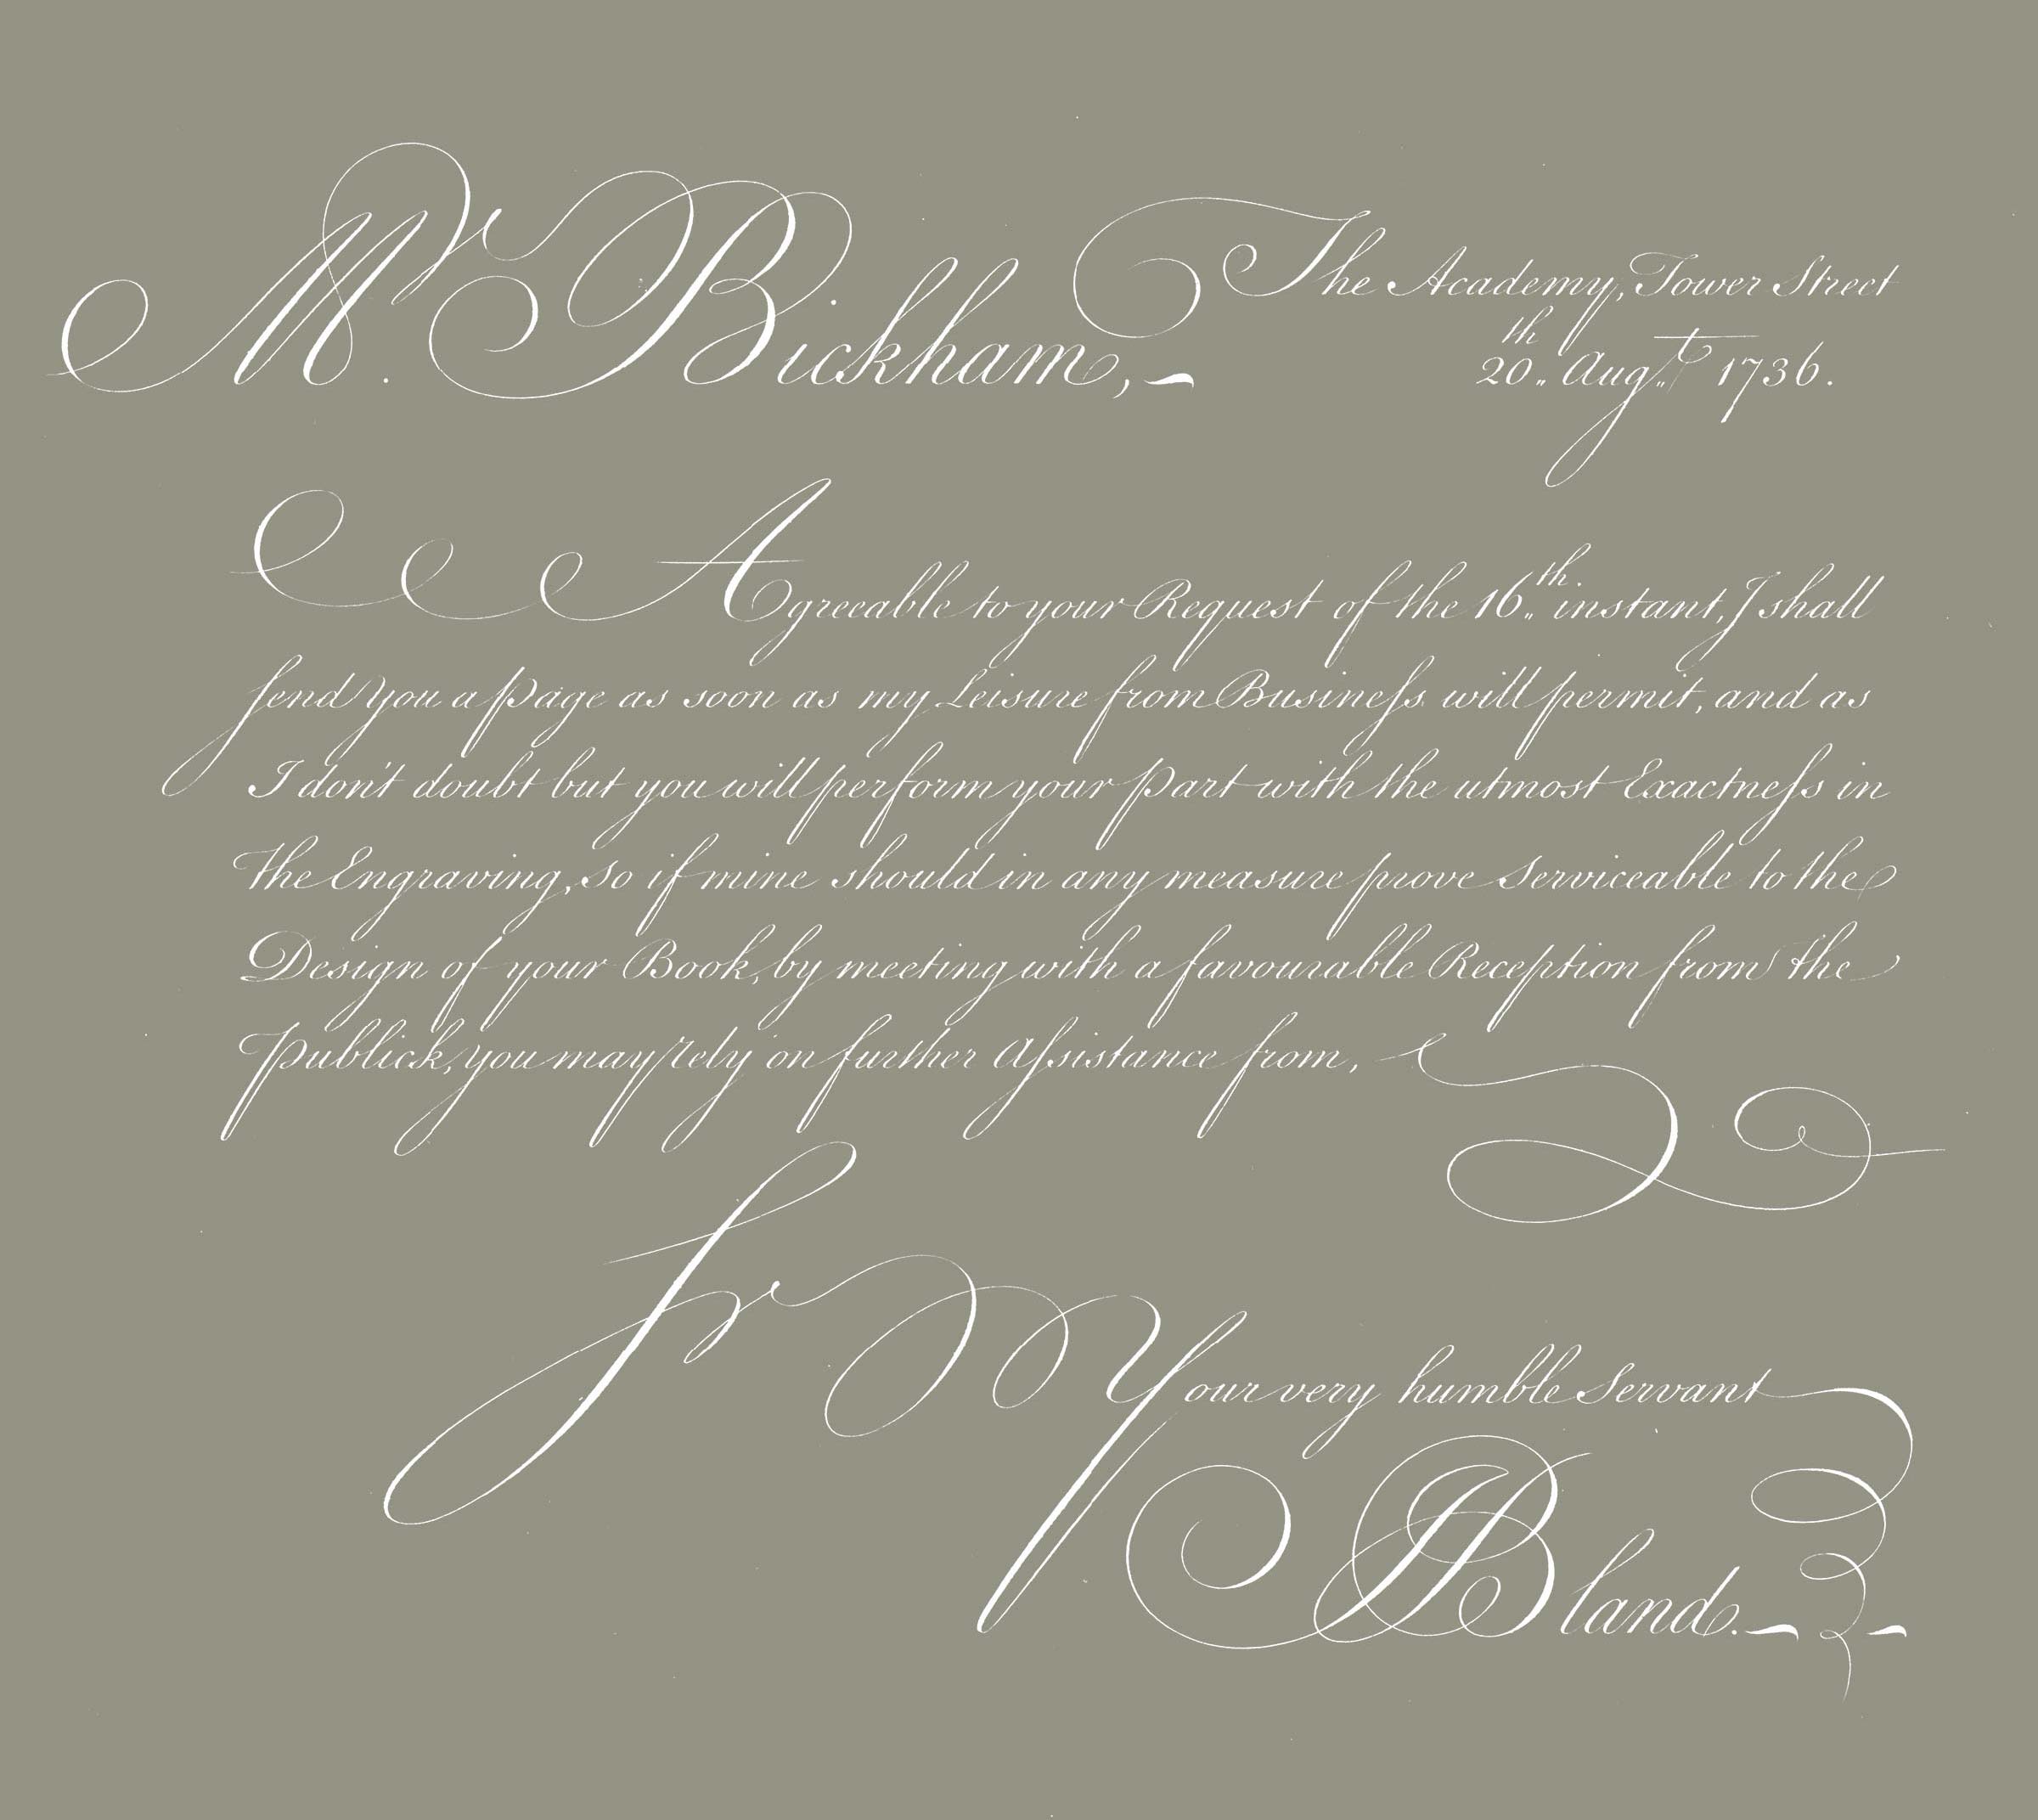 Mr. Bickham,
The Academy, Tower Street
20th Augt 1736.
Agreeable to your Request of the 16th instant, I shall
send you a page as soon as my Leisure from Business will permit, and as
I don't doubt but you will perform your part with the utmost Exactness in
the Engraving, so if mine should in any measure prove serviceable to the
Design of your Book, by meeting with a favourable Reception from the
Publick, you may rely on further Assistance from,
Sr
Your very humble Servant
Bland.